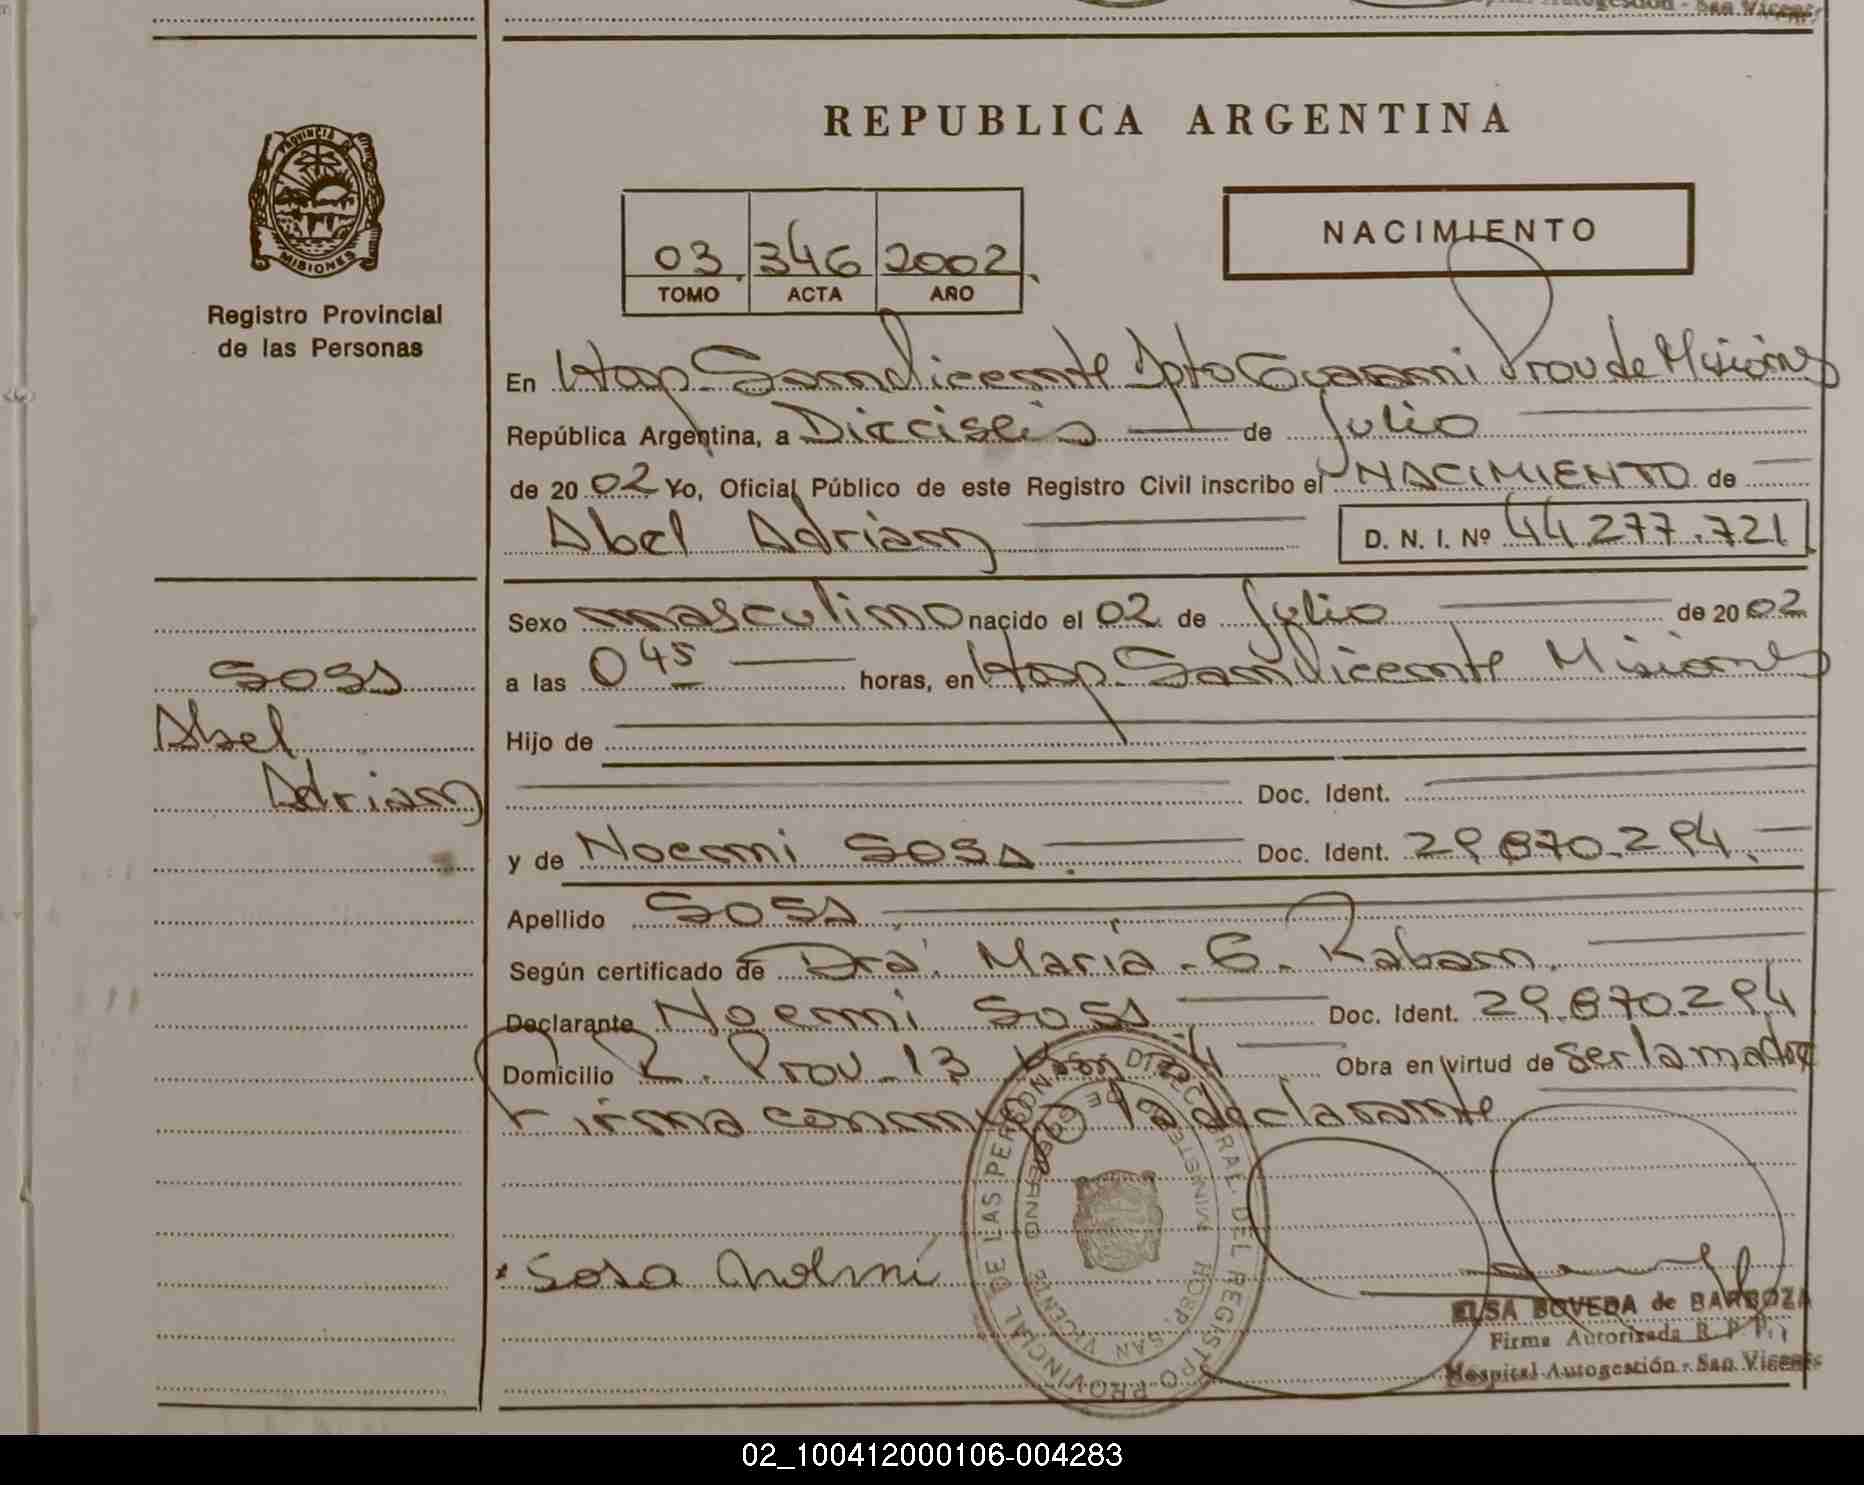 REPUBLICA ARGENTINA
PROVINCIA DE
MISIONES
Registro Provincial
de las Personas
03 346 2002
TOMO ACTA AÑO
NACIMIENTO
En Hosp. San Vicente Dpto Guarani Prov de Misiones
República Argentina, a Dieciseis de Julio
de 20 02 Yo, Oficial Público de este Registro Civil inscribo el NACIMIENTO de
Abel Adrian D. N. I. Nº 44.277.721
Sexo masculino nacido el 02 de Julio de 20 02
a las 0 45 horas, en Hosp. San Vicente Misiones
Hijo de
Doc. Ident.
y de Noemi SOSA. Doc. Ident. 29.870.294.
Apellido SOSA
Según certificado de Dra. Maria. G. Raban.
Declarante Noemi SOSA Doc. Ident. 29.870.294
Domicilio R. Prov. 13 Obra en virtud de ser la madre
Firma conmigo la declarante
SOSA
Abel
Adrian
Sosa Nohemí
DEL REGISTRO PROVINCIAL DE LAS PERSONAS
MINISTERIO DE GOBIERNO
HOSP. SAN VICENTE
ELSA BOVEDA de BARBOZA
Firma Autorizada R. P. P.
Hospital Autogestión - San Vicente
02_100412000106-004283